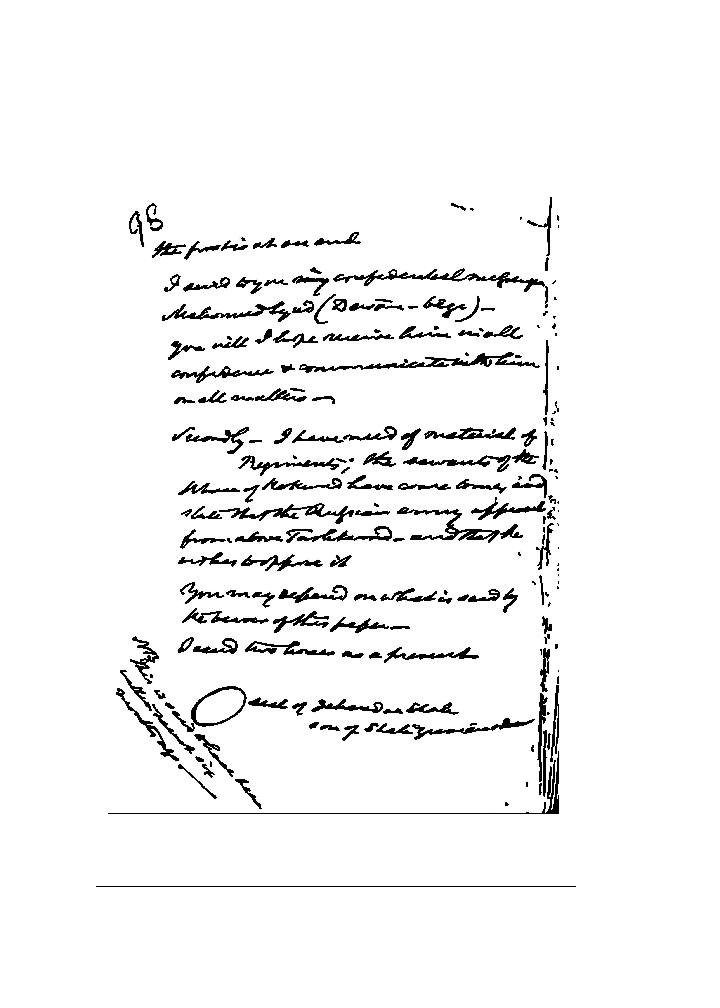 98
the frost is at an end
I send to you my confidential messenger
Mahomed Syud (Dewan-begi) -
you will I hope receive him in all
confidence & communicate with him
on all matters -
Secondly - I have need of material of
Regiments; the servants of the
of Kokund have come to me, and
state that the Russian army approach
from above Tashkend - and that he
wishes to oppose it
You may depend on what is said by
the bearer of this paper -
I send two horses as a present -
seal of Shah
son of Shah
NB
This is said to have been
written about six
months ago -